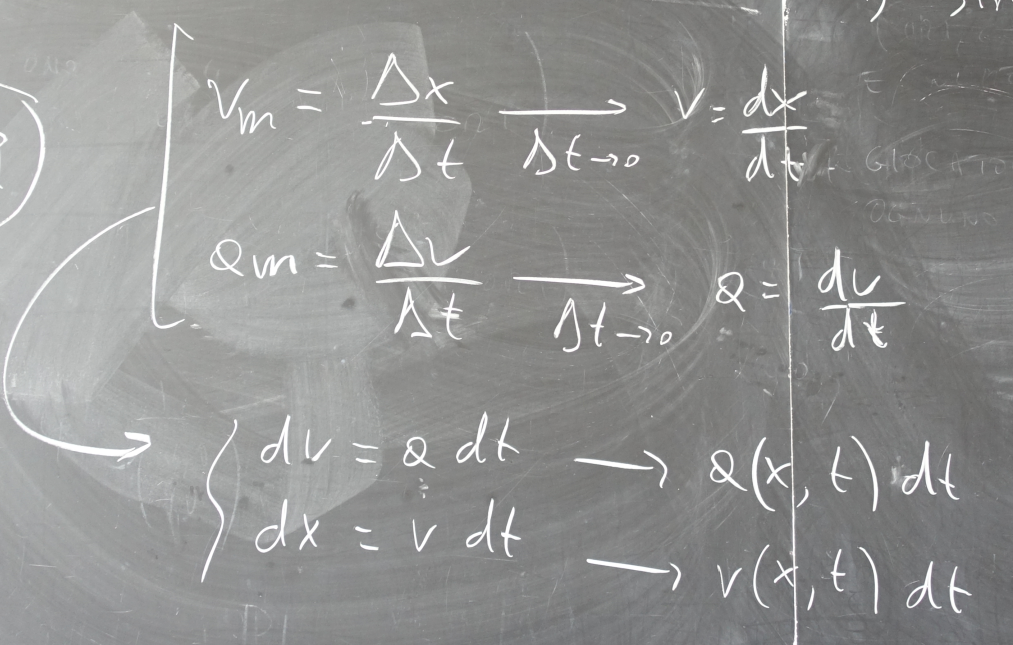 Vm = Δx/Δt → Δt→0 v = dx/dt
am = Δv/Δt → Δt→0 a = dv/dt
dv = a dt → a(x, t) dt
dx = v dt → v(x, t) dt